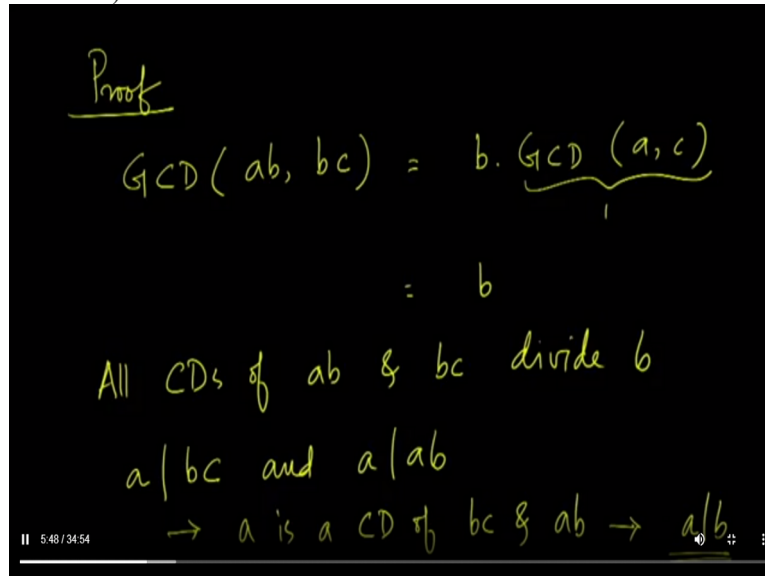 Proof
GCD( ab, bc) = b. GCD (a, c)
1
= b
All CDs of ab & bc divide b
a|bc and a|ab
→ a is a CD of bc & ab → a|b
5:48 / 34:54